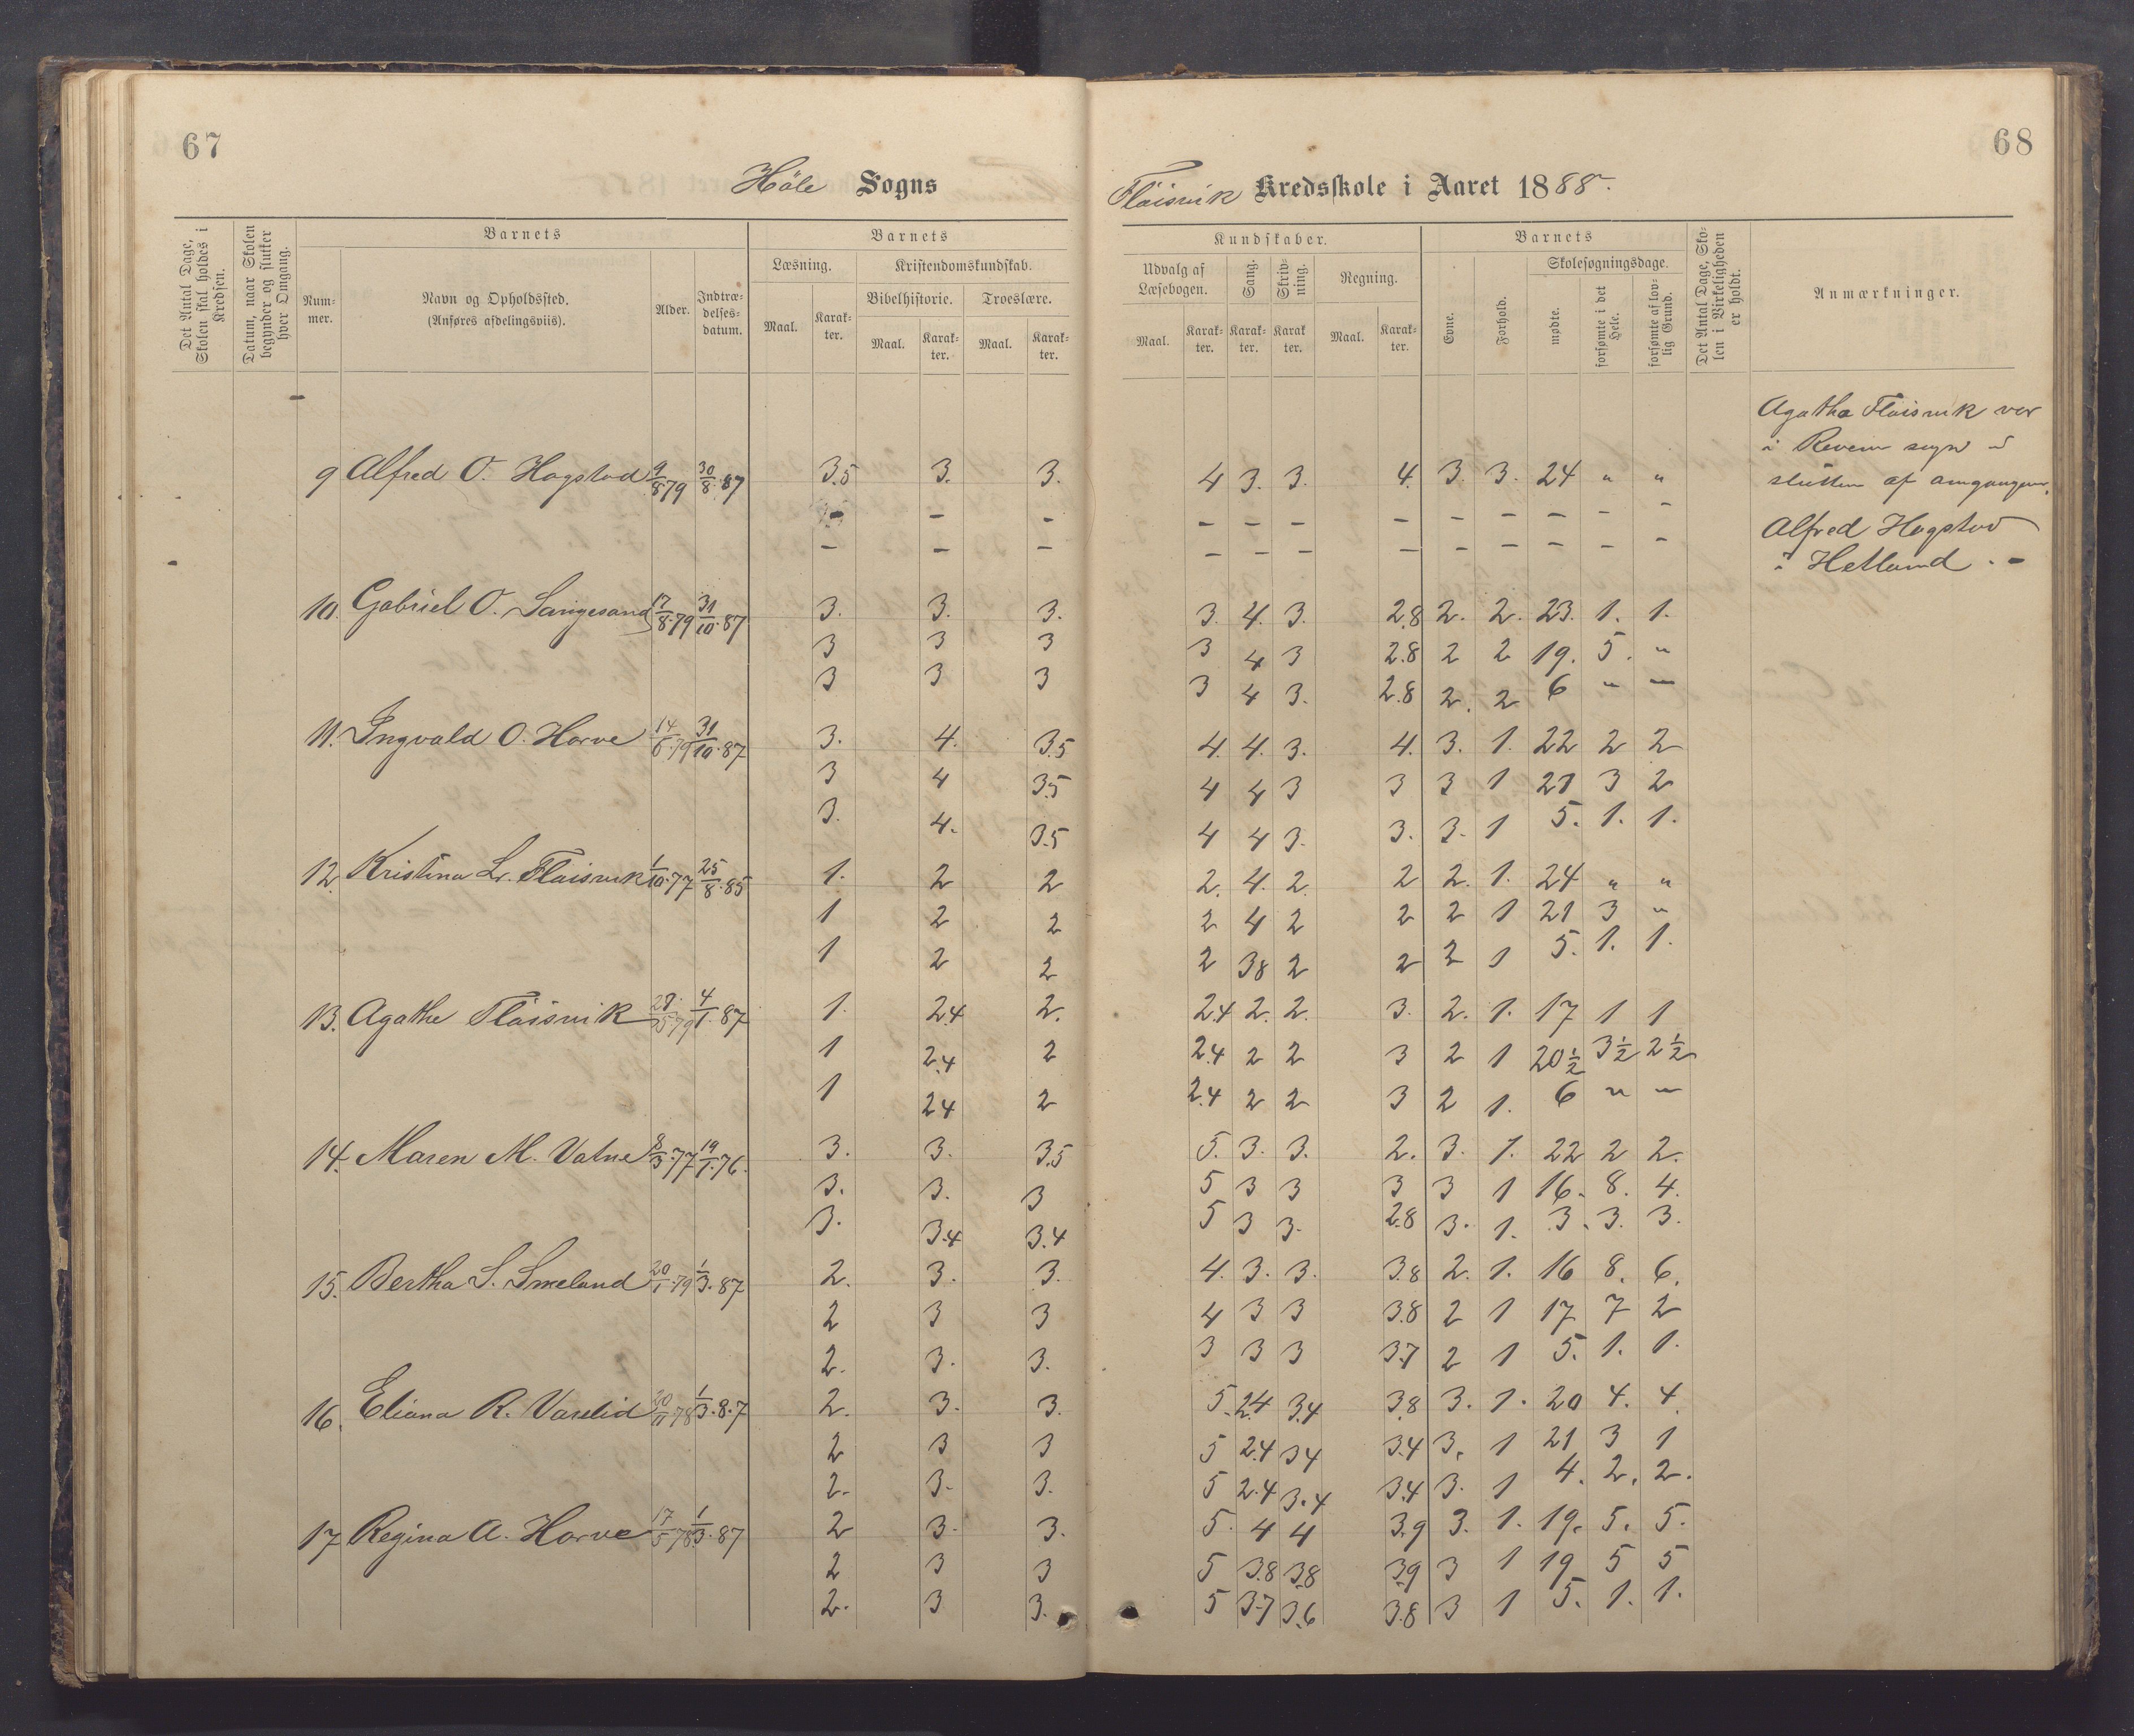 67
68
Höle Sogns
Fløisvik Kredsskole i Aaret 1888.
Det Antal Dage, Skolen skal holdes i Kredsen.
Datum, naar Skolen begynder og slutter hver Omgang.
Barnets
Num-
mer.
Navn og Opholdssted.
(Anføres afdelingsviis).
Alder.
Indtræ-
delses-
datum.
Barnets
Læsning.
Maal.
Karak-
ter.
Kristendomskundskab.
Bibelhistorie.
Troeslære.
Maal.
Karak-
ter.
Maal.
Karak-
ter.
Kundskaber.
Udvalg af
Læsebogen.
Sang.
Skriv-
ning.
Regning.
Maal.
Karak-
ter.
Karak-
ter.
Karak
ter.
Maal.
Karak-
ter.
Barnets
Evne.
Forhold.
Skolesøgningsdage.
mødte.
forsømte i det Hele.
forsømte af lov-
lig Grund.
Det Antal Dage, Sko-
len i Virkeligheden er holdt.
Anmærkninger.
Agatha Fløisvik var
i
sluttn af omgangen.
Alfred Hogstad
i Hetland. -
9 Alfred O. Hogstad 9/8 79 30/8 87 3.5 3. 3. 4 3. 3. 4. 3. 3. 24 " "
- - - - - - - - - - - -
- - - - - - - - - - - -
10. Gabriel O. Langesand 17/8 79 31/10 87 3. 3. 3. 3. 4. 3. 2.8 2. 2. 23. 1. 1.
3 3 3 3 4 3 2.8 2 2 19. 5. "
3 3 3 3 4 3. 2.8 2. 2 6 " "
11. Ingvald O. Horve 14/6 79 31/10 87 3. 4. 3.5 4. 4. 3. 4. 3. 1. 22 2 2
3 4 3.5 4 4 3 3 3 1 21 3 2
3. 4. 3.5 4 4 3. 3. 3. 1 5. 1. 1.
12. Kristina L. Fløisvik 1/10 77 25/8 85 1. 2 2 2. 4. 2. 2 2. 1. 24 " "
1 2 2 2 4 2 2 2 1 21 3 "
1 2 2 2 38 2 2 2 1 5. 1. 1.
13. Agathe Fløisvik 28/5 79 4/1 87 1. 2.4 2. 2.4 2. 2. 3. 2. 1. 17 1 1
1 2.4 2 2.4 2 2 3 2 1 20½ 3½ 2½
1 2.4 2 2.4 2 2 3 2 1. 6 " "
14. Maren M. Vatne 8/3 77 19/1 76. 3. 3. 3.5 5. 3. 3. 2. 3. 1. 22 2 2.
3. 3. 3 5 3 3 3 3 1 16. 8. 4.
3. 3.4 3.4 5 3 3. 2.8 3. 1. 3. 3. 3.
15. Bertha S. Smeland 20/1 79 1/3 87 2. 3. 3. 4. 3. 3. 3.8 2. 1. 16 8. 6.
2 3 3 4 3 3 3.8 2 1 17 7 2
2. 3. 3. 3 3 3 3.7 2 1 5. 1. 1.
16. Eliana R. Vaselid 20/11 78 1/3 87 2. 3. 3. 5. 2.4 3.4 3.8 3. 1. 20 4. 4.
2 3 3 5 2.4 3 4 3.4 3. 1 21 3 1
2. 3. 3. 5 2.4 3.4 3.4 3. 1 4. 2. 2.
17 Regina A. Horve 17/5 78 1/3 87 2 3. 3. 5. 4 4 3.9 3. 1. 19. 5. 5.
2 3 3 5 3.8 3.8 3.9 3 1 19 5 5
2. 3 3. 5 3.7 3.6 3.8 3 1 5. 1. 1.